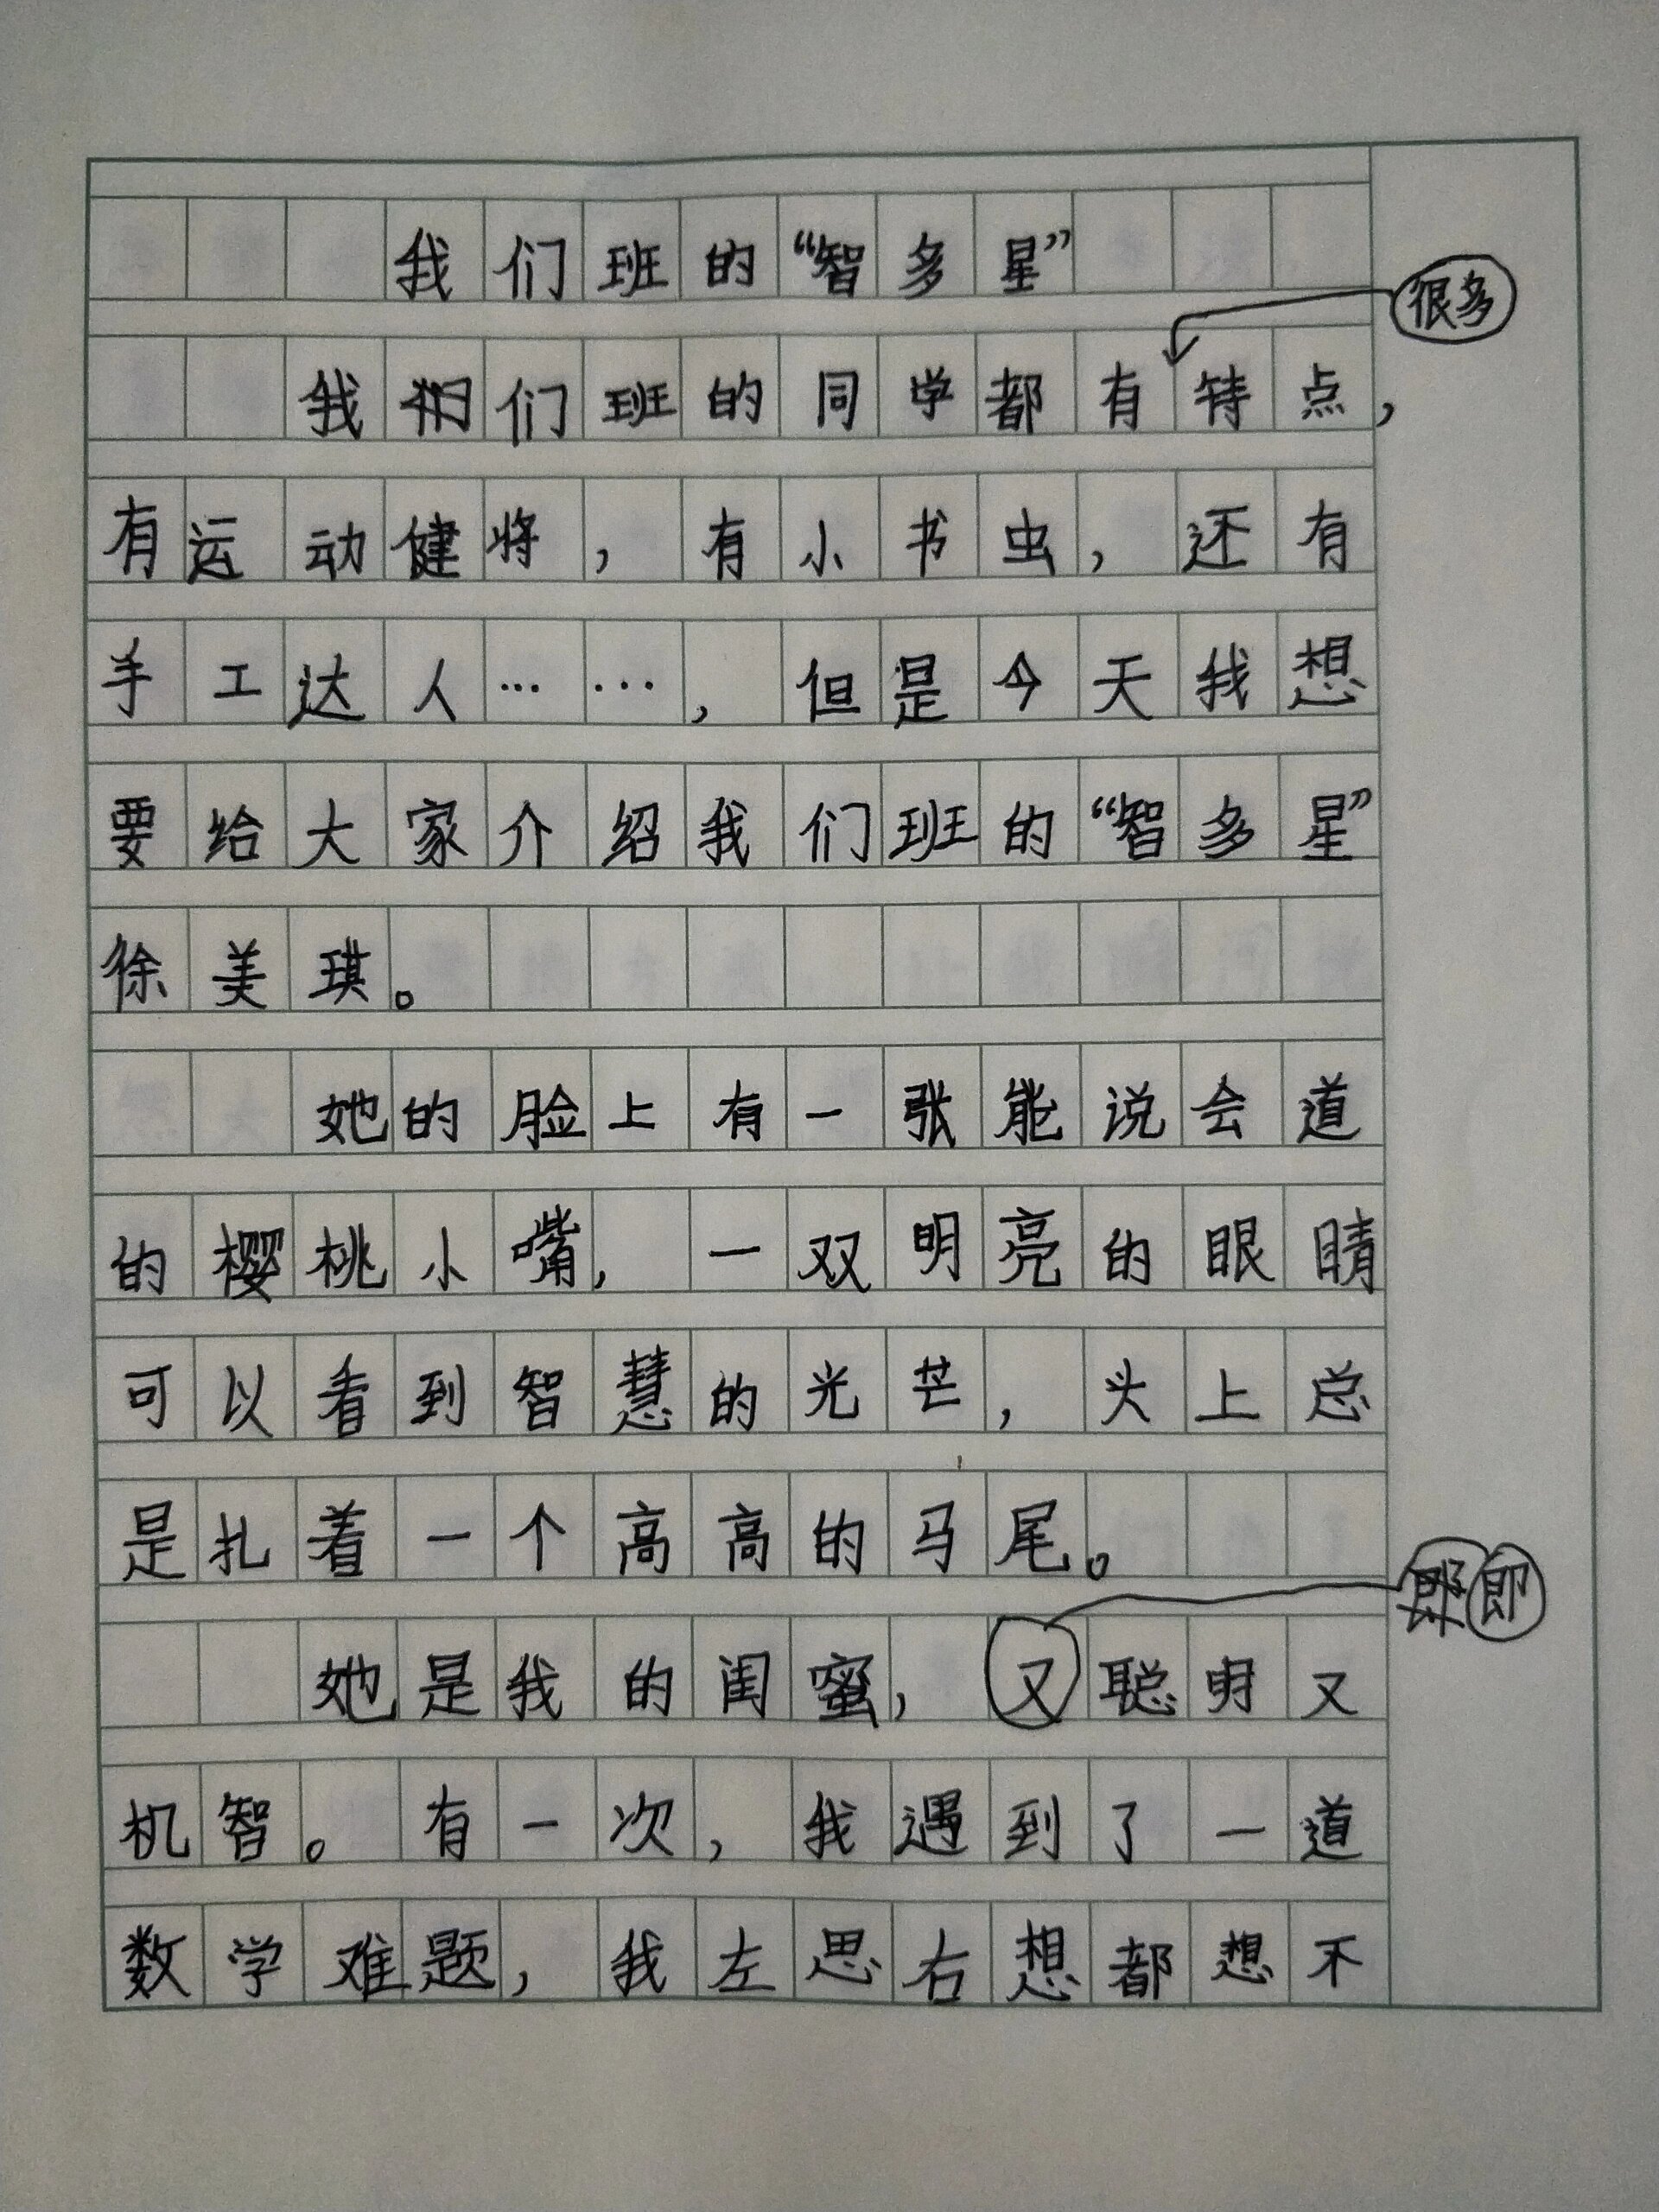 我们班的“智多星”
很多
我们班的同学都有特点，
有运动健将，有小书虫，还有
手工达人……，但是今天我想
要给大家介绍我们班的“智多星”
徐美琪。
她的脸上有一张能说会道
的樱桃小嘴，一双明亮的眼睛
可以看到智慧的光芒，头上总
是扎着一个高高的马尾。
即
她是我的闺蜜，又聪明又
机智。有一次，我遇到了一道
数学难题，我左思右想都想不